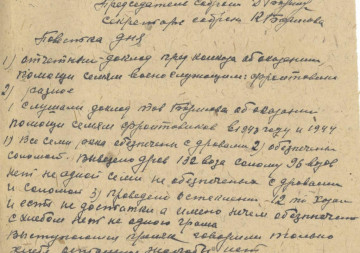 Председатель собрания
Секретарь собрания К Баринова
Повестка дня
1) отчетный доклад пред колхоза об оказании
помощи семьям военнослужащим фронтовика
2) разное
1 слушали доклад тов Баринова об оказании
помощи семьям фронтовиков в 1943 году и 1944
1) Все семьи обеспечены с дровами 2) обеспечены
соломой. Вывезено дров 132 воза солому 96 возов
нет не одной семьи не обеспеченых с дровами
и соломой 3) проведено остекление 12 ти
и есть не достатки а имено нечем обезпечено
с хлебом нет не одного грама
выступающем прения говорили только
хлеба